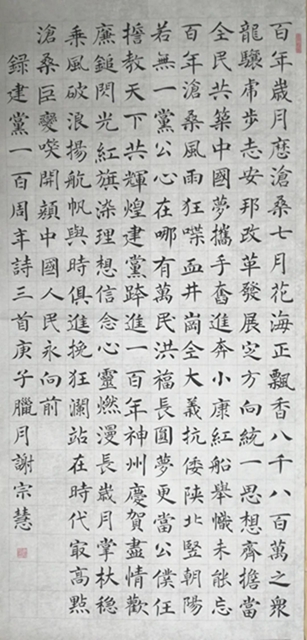 百年歲月歷滄桑七月花海正飄香八千八百萬之衆
龍驤虎步志安邦改革發展定方向統一思想齊擔當
全民共築中國夢攜手奮進奔小康紅船舉幟未能忘
百年滄桑風雨狂喋血井崗全大義抗倭陝北豎朝陽
若無一黨公心在哪有萬民洪福長圓夢更當公僕任
擔教天下共輝煌建黨跨進一百年神州慶賀盡情歡
廉鎚閃光紅旗染理想信念心靈燃漫長歲月掌杕穩
乘風破浪揚航帆與時俱進挽狂瀾站在時代冣高點
滄桑巨變喚開顏中國人民永向前
錄建黨一百周年詩三首庚子臘月謝宗慧